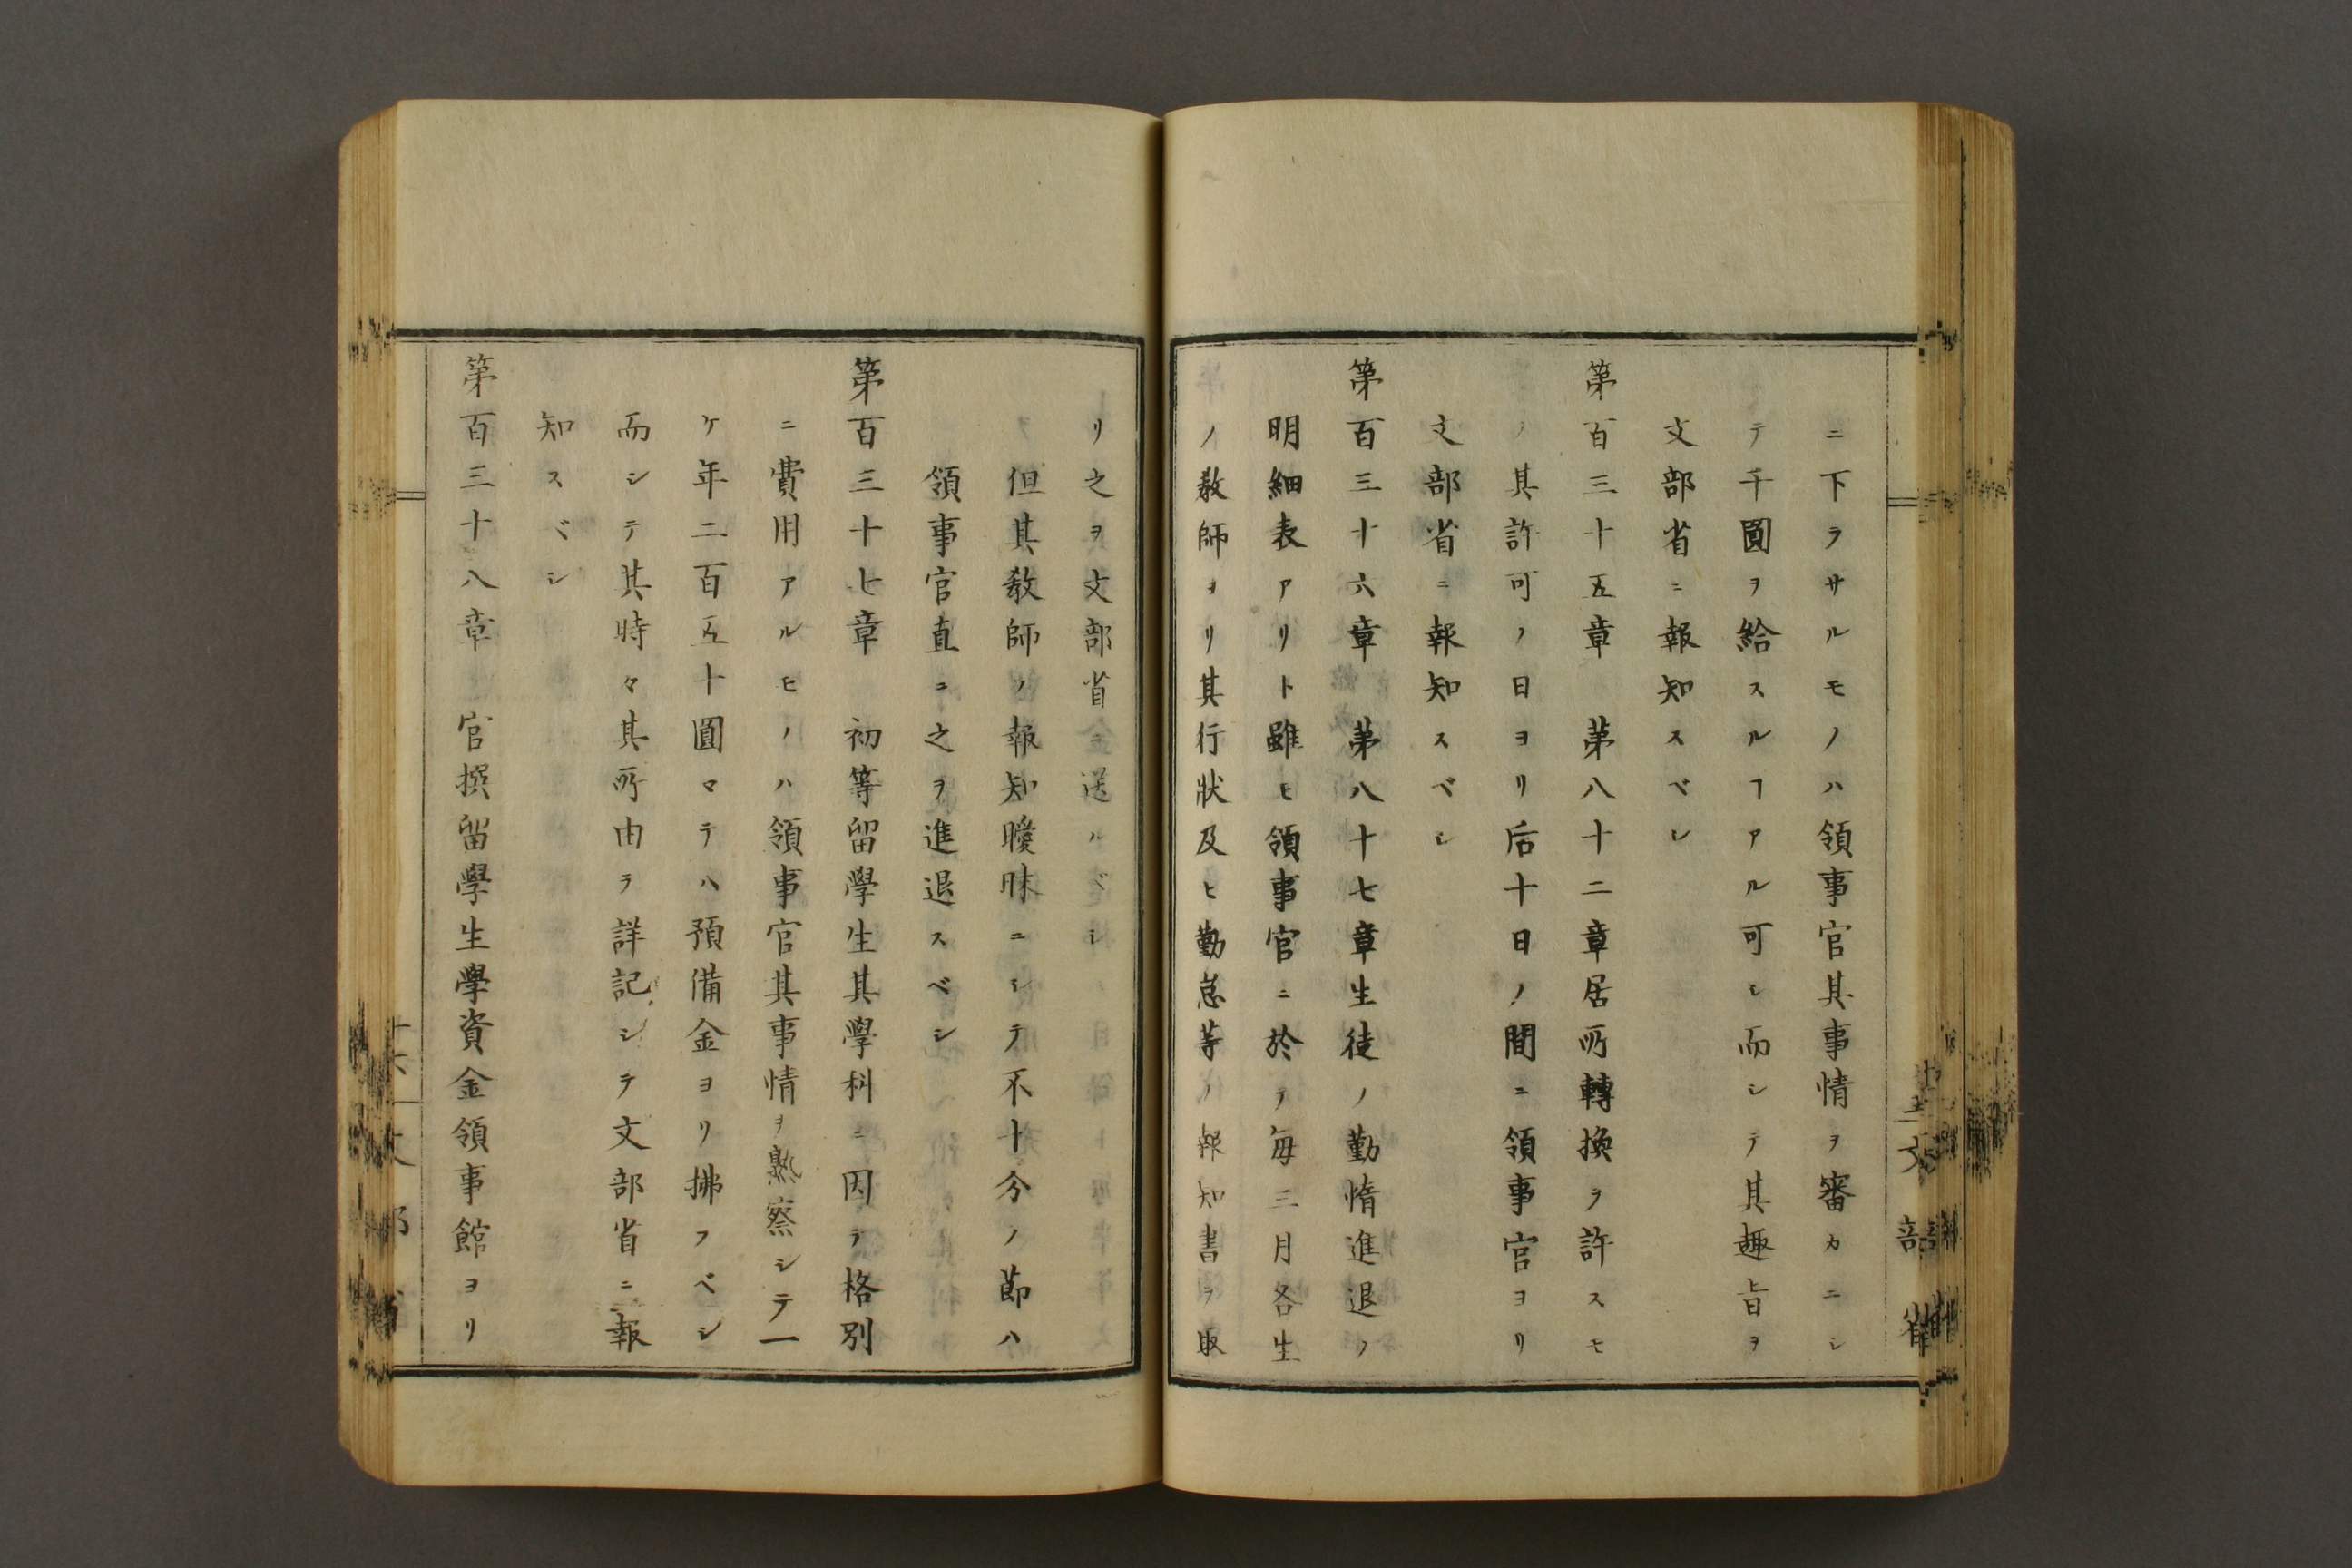 ニ下ラサルモノハ領事官其事情ヲ審カニシ
テ千圓ヲ給スルヿアル可シ而シテ其趣旨ヲ
文部省ニ報知スベシ
第百三十五章　第八十二章居所轉換ヲ許スモ
ノ其許可ノ日ヨリ后十日ノ間ニ領事官ヨリ
文部省ニ報知スベシ
第百三十六章　第八十七章生徒ノ勤惰進退ノ
明細表アリト雖ヒ領事官ニ於テ毎三月各生
ノ教師ヨリ其行状及ヒ勤怠等ノ報知書ヲ取
文部省
リ之ヲ文部省ニ送ルベシ
但其教師ノ報知曖昧ニシテ不十分ノ節ハ
領事官直ニ之ヲ進退スベシ
第百三十七章　初等留學生其學科ニ因テ格別
ニ費用アルモノハ領事官其事情ヲ熟察シテ一
ケ年二百五十圓マテハ預備金ヨリ拂フベシ
而シテ其時々其所由ヲ詳記シテ文部省ニ報
知スベシ
第百三十八章　官撰留學生學資金領事館ヨリ